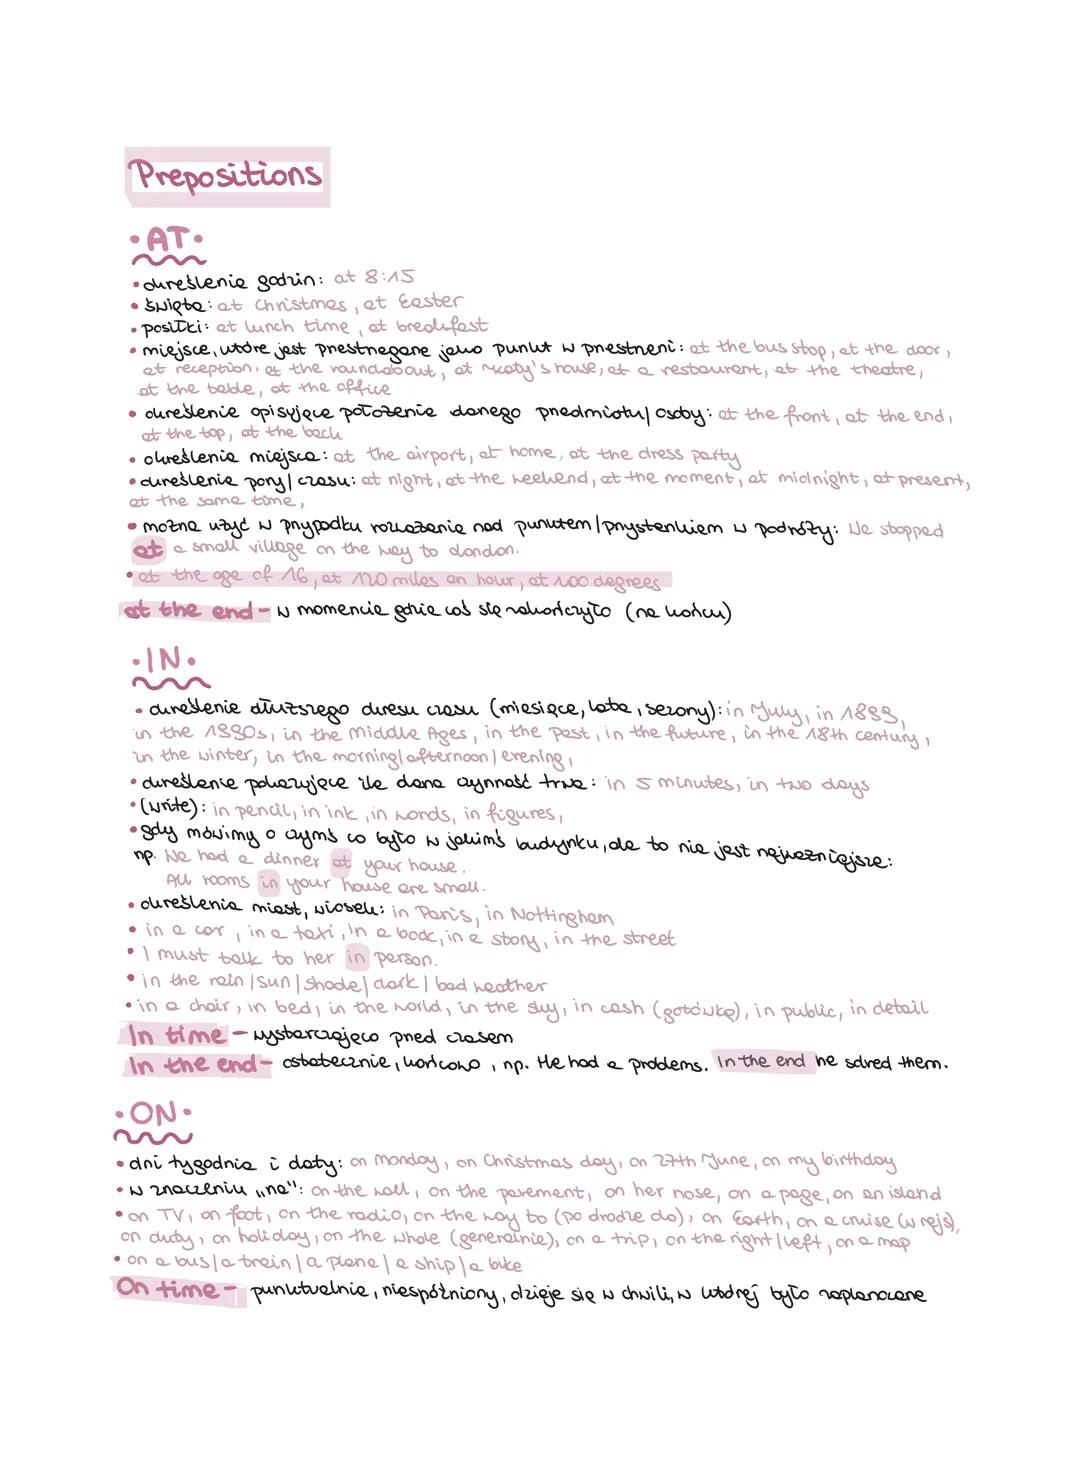 Prepositions
• AT •
• określenie godzin: at 8:15
• święta: at Christmas, at Easter
• posiłki: at lunch time, at breakfast
• miejsce, które jest przestrzegane jako punkt w przestrzeni: at the bus stop, at the door,
at reception, at the roundabout, at Katy's house, at a restaurant, at the theatre,
at the table, at the office
• określenie opisujące położenie danego przedmiotu/osoby: at the front, at the end,
at the top, at the back
• określenia miejsca: at the airport, at home, at the dress party
• określenia pory/czasu: at night, at the weekend, at the moment, at midnight, at present,
at the same time,
• można użyć w przypadku rozważania nad punktem/przystankiem w podróży: We stopped
at a small village on the way to London.
• at the age of 16, at 120 miles an hour, at 100 degrees
at the end - w momencie gdzie coś się zakończyło (na końcu)
• IN •
• określenie dłuższego okresu czasu (miesiące, lata, sezony): in July, in 1899,
in the 1990s, in the Middle Ages, in the past, in the future, in the 18th century,
in the winter, in the morning/afternoon/evening,
• określenie pokazujące ile dana czynność trwa: in 5 minutes, in two days
• (write): in pencil, in ink, in words, in figures,
• gdy mówimy o czymś co było w jakimś budynku, ale to nie jest najważniejsze:
np. We had a dinner at your house.
All rooms in your house are small.
• określenia miast, wiosek: in Paris, in Nottingham
• in a car, in a taxi, in a book, in a story, in the street
• I must talk to her in person.
• in the rain/sun/shade/dark/bad weather
• in a chair, in bed, in the world, in the sky, in cash (gotówką), in public, in detail
In time - wystarczająco przed czasem
In the end - ostatecznie, końcowo, np. He had a problems. In the end he solved them.
• ON •
• dni tygodnia i daty: on Monday, on Christmas day, on 27th June, on my birthday
• w znaczeniu „na": on the wall, on the pavement, on her nose, on a page, on an island
• on TV, on foot, on the radio, on the way to (po drodze do), on Earth, on a cruise (w rejs),
on duty, on holiday, on the whole (generalnie), on a trip, on the right/left, on a map
• on a bus/a train/a plane/a ship/a bike
On time - punktualnie, niespóźniony, dzieje się w chwili, w której było zaplanowane